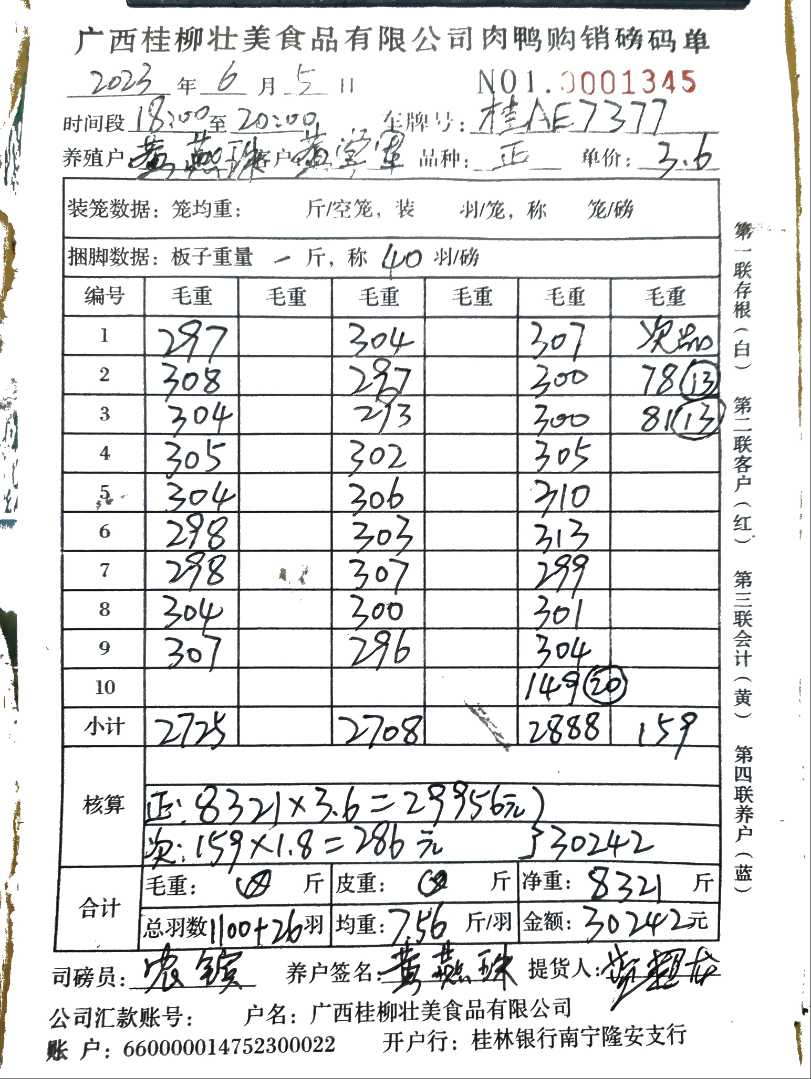 广西桂柳壮美食品有限公司肉鸭购销磅码单
2023 年 6 月 5 日 NO1.0001345
时间段 18:00 至 20:00 车牌号: 桂AE7377
养殖户 黄燕珠 客户 黄宝军 品种: 正 单价: 3.6
装笼数据: 笼均重: 斤/空笼, 装 羽/笼, 称 笼/磅
捆脚数据: 板子重量 一 斤, 称 40 羽/磅
编号 毛重 毛重 毛重 毛重 毛重 毛重
1 297 304 307 次品
2 308 297 300 78 13
3 304 293 300 81 13
4 305 302 305
5 304 306 310
6 298 303 313
7 298 307 299
8 304 300 301
9 307 296 304
10 149 20
小计 2725 2708 2888 159
核算
正: 8321×3.6=29956元
次: 159×1.8=286元 }30242
合计
毛重: 斤 皮重: 斤 净重: 8321 斤
总羽数 1100+26 羽 均重: 7.56 斤/羽 金额: 30242 元
司磅员: 养户签名: 黄燕珠 提货人:
公司汇款账号: 户名: 广西桂柳壮美食品有限公司
账 户: 660000014752300022 开户行: 桂林银行南宁隆安支行
第一联存根(白) 第二联客户(红) 第三联会计(黄) 第四联养户(蓝)